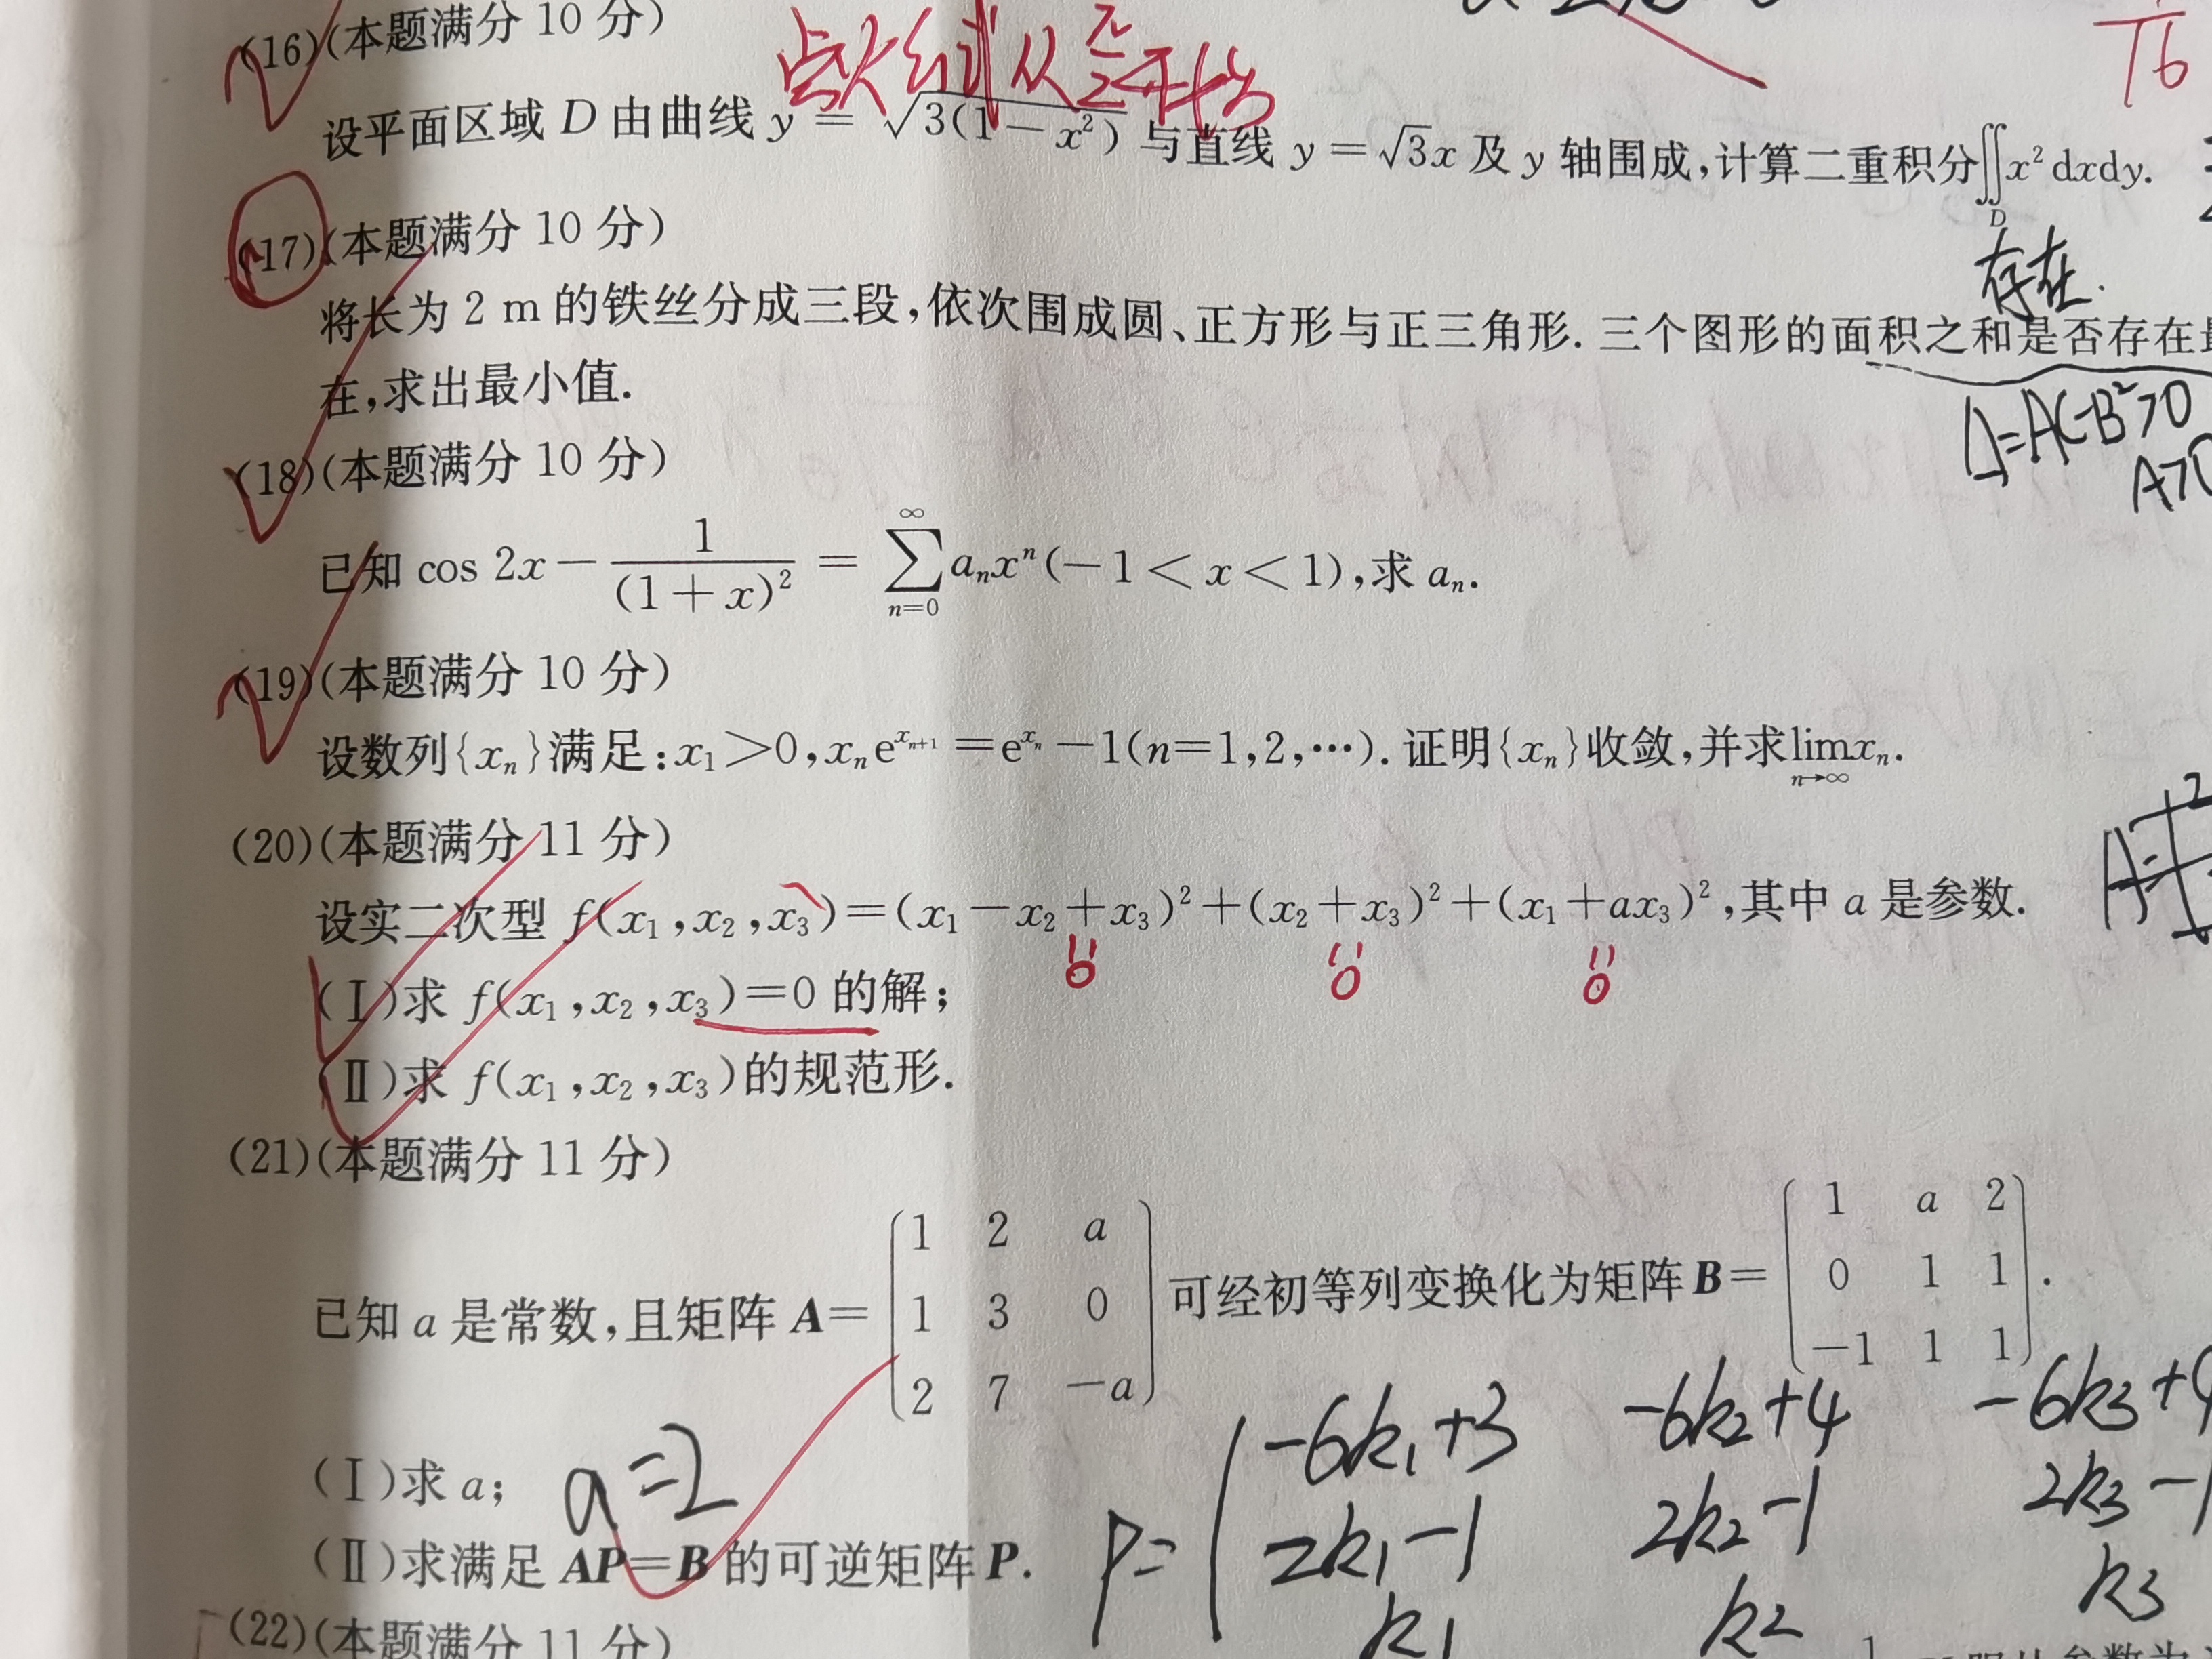 (16)(本题满分 10 分)
点火公式从π/2开始
16
设平面区域 D 由曲线 y = √3(1－x²) 与直线 y＝√3x 及 y 轴围成,计算二重积分∬_D x² dxdy.
(17)(本题满分 10 分)
存在.
将长为 2 m 的铁丝分成三段,依次围成圆、正方形与正三角形. 三个图形的面积之和是否存在
在,求出最小值.
Δ=AC-B²>0
A>0
(18)(本题满分 10 分)
已知 cos 2x－1/(1＋x)² ＝ ∑_{n=0}^{∞} aₙxⁿ(－1＜x＜1),求 aₙ.
(19)(本题满分 10 分)
设数列{xₙ}满足:x₁＞0,xₙe^{x_{n+1}}＝e^{x_n}－1(n=1,2,…). 证明{xₙ}收敛,并求lim_{n→∞}xₙ.
(20)(本题满分 11 分)
设实二次型 f(x₁,x₂,x₃)＝(x₁－x₂＋x₃)²＋(x₂＋x₃)²＋(x₁＋ax₃)²,其中 a 是参数.
=0 =0 =0
(Ⅰ)求 f(x₁,x₂,x₃)＝0 的解;
(Ⅱ)求 f(x₁,x₂,x₃)的规范形.
(21)(本题满分 11 分)
已知 a 是常数,且矩阵 A＝(1 2 a; 1 3 0; 2 7 －a)可经初等列变换化为矩阵 B＝(1 a 2; 0 1 1; －1 1 1).
(Ⅰ)求 a; a=2
(Ⅱ)求满足 AP＝B 的可逆矩阵 P.
P= -6k₁+3 -6k₂+4 -6k₃+4
2k₁-1 2k₂-1 2k₃-1
k₁ k₂ k₃
(22)(本题满分 11 分)